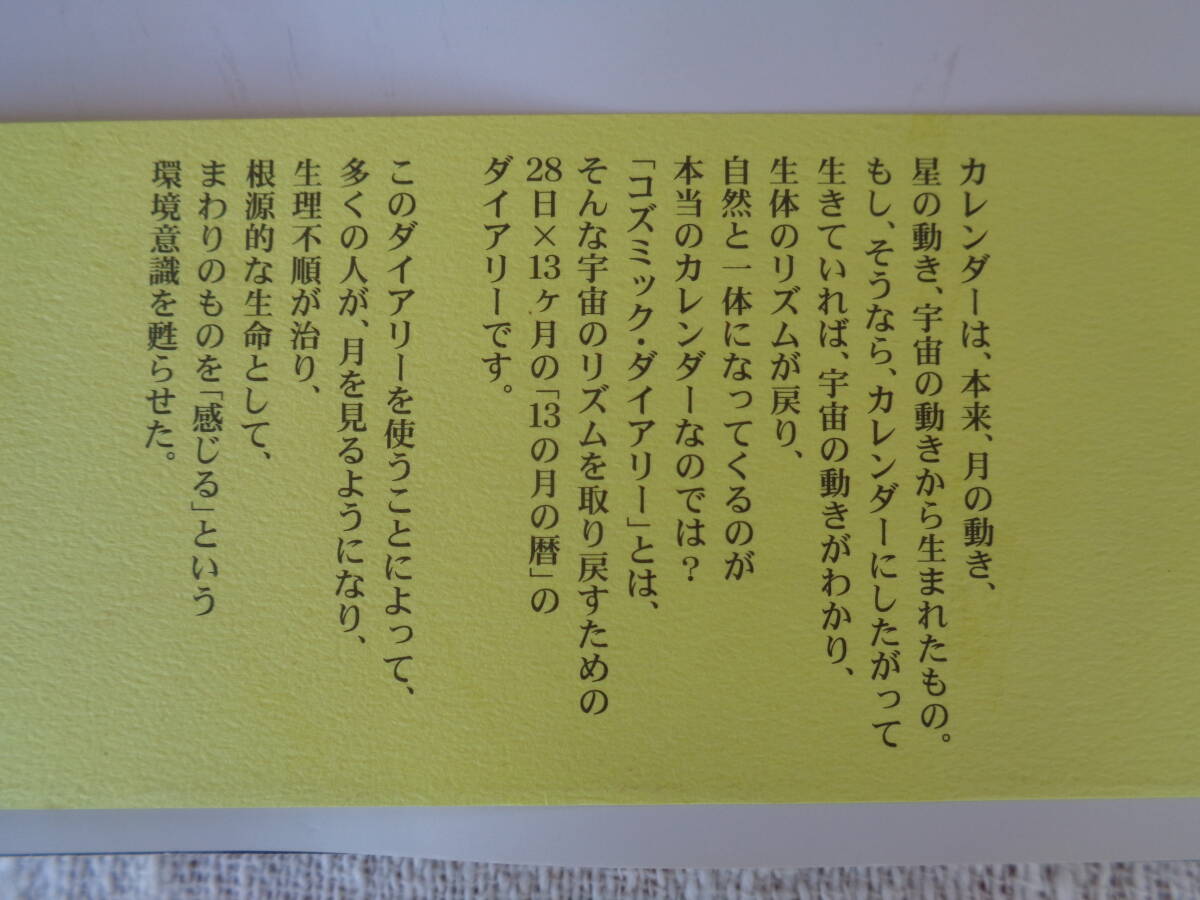 カレンダーは、本来、月の動き、
星の動き、宇宙の動きから生まれたもの。
もし、そうなら、カレンダーにしたがって
生きていれば、宇宙の動きがわかり、
生体のリズムが戻り、
自然と一体になってくるのが
本当のカレンダーなのでは？
「コズミック・ダイアリー」とは、
そんな宇宙のリズムを取り戻すための
28日×13ヶ月の「13の月の暦」の
ダイアリーです。
このダイアリーを使うことによって、
多くの人が、月を見るようになり、
生理不順が治り、
根源的な生命として、
まわりのものを「感じる」という
環境意識を甦らせた。